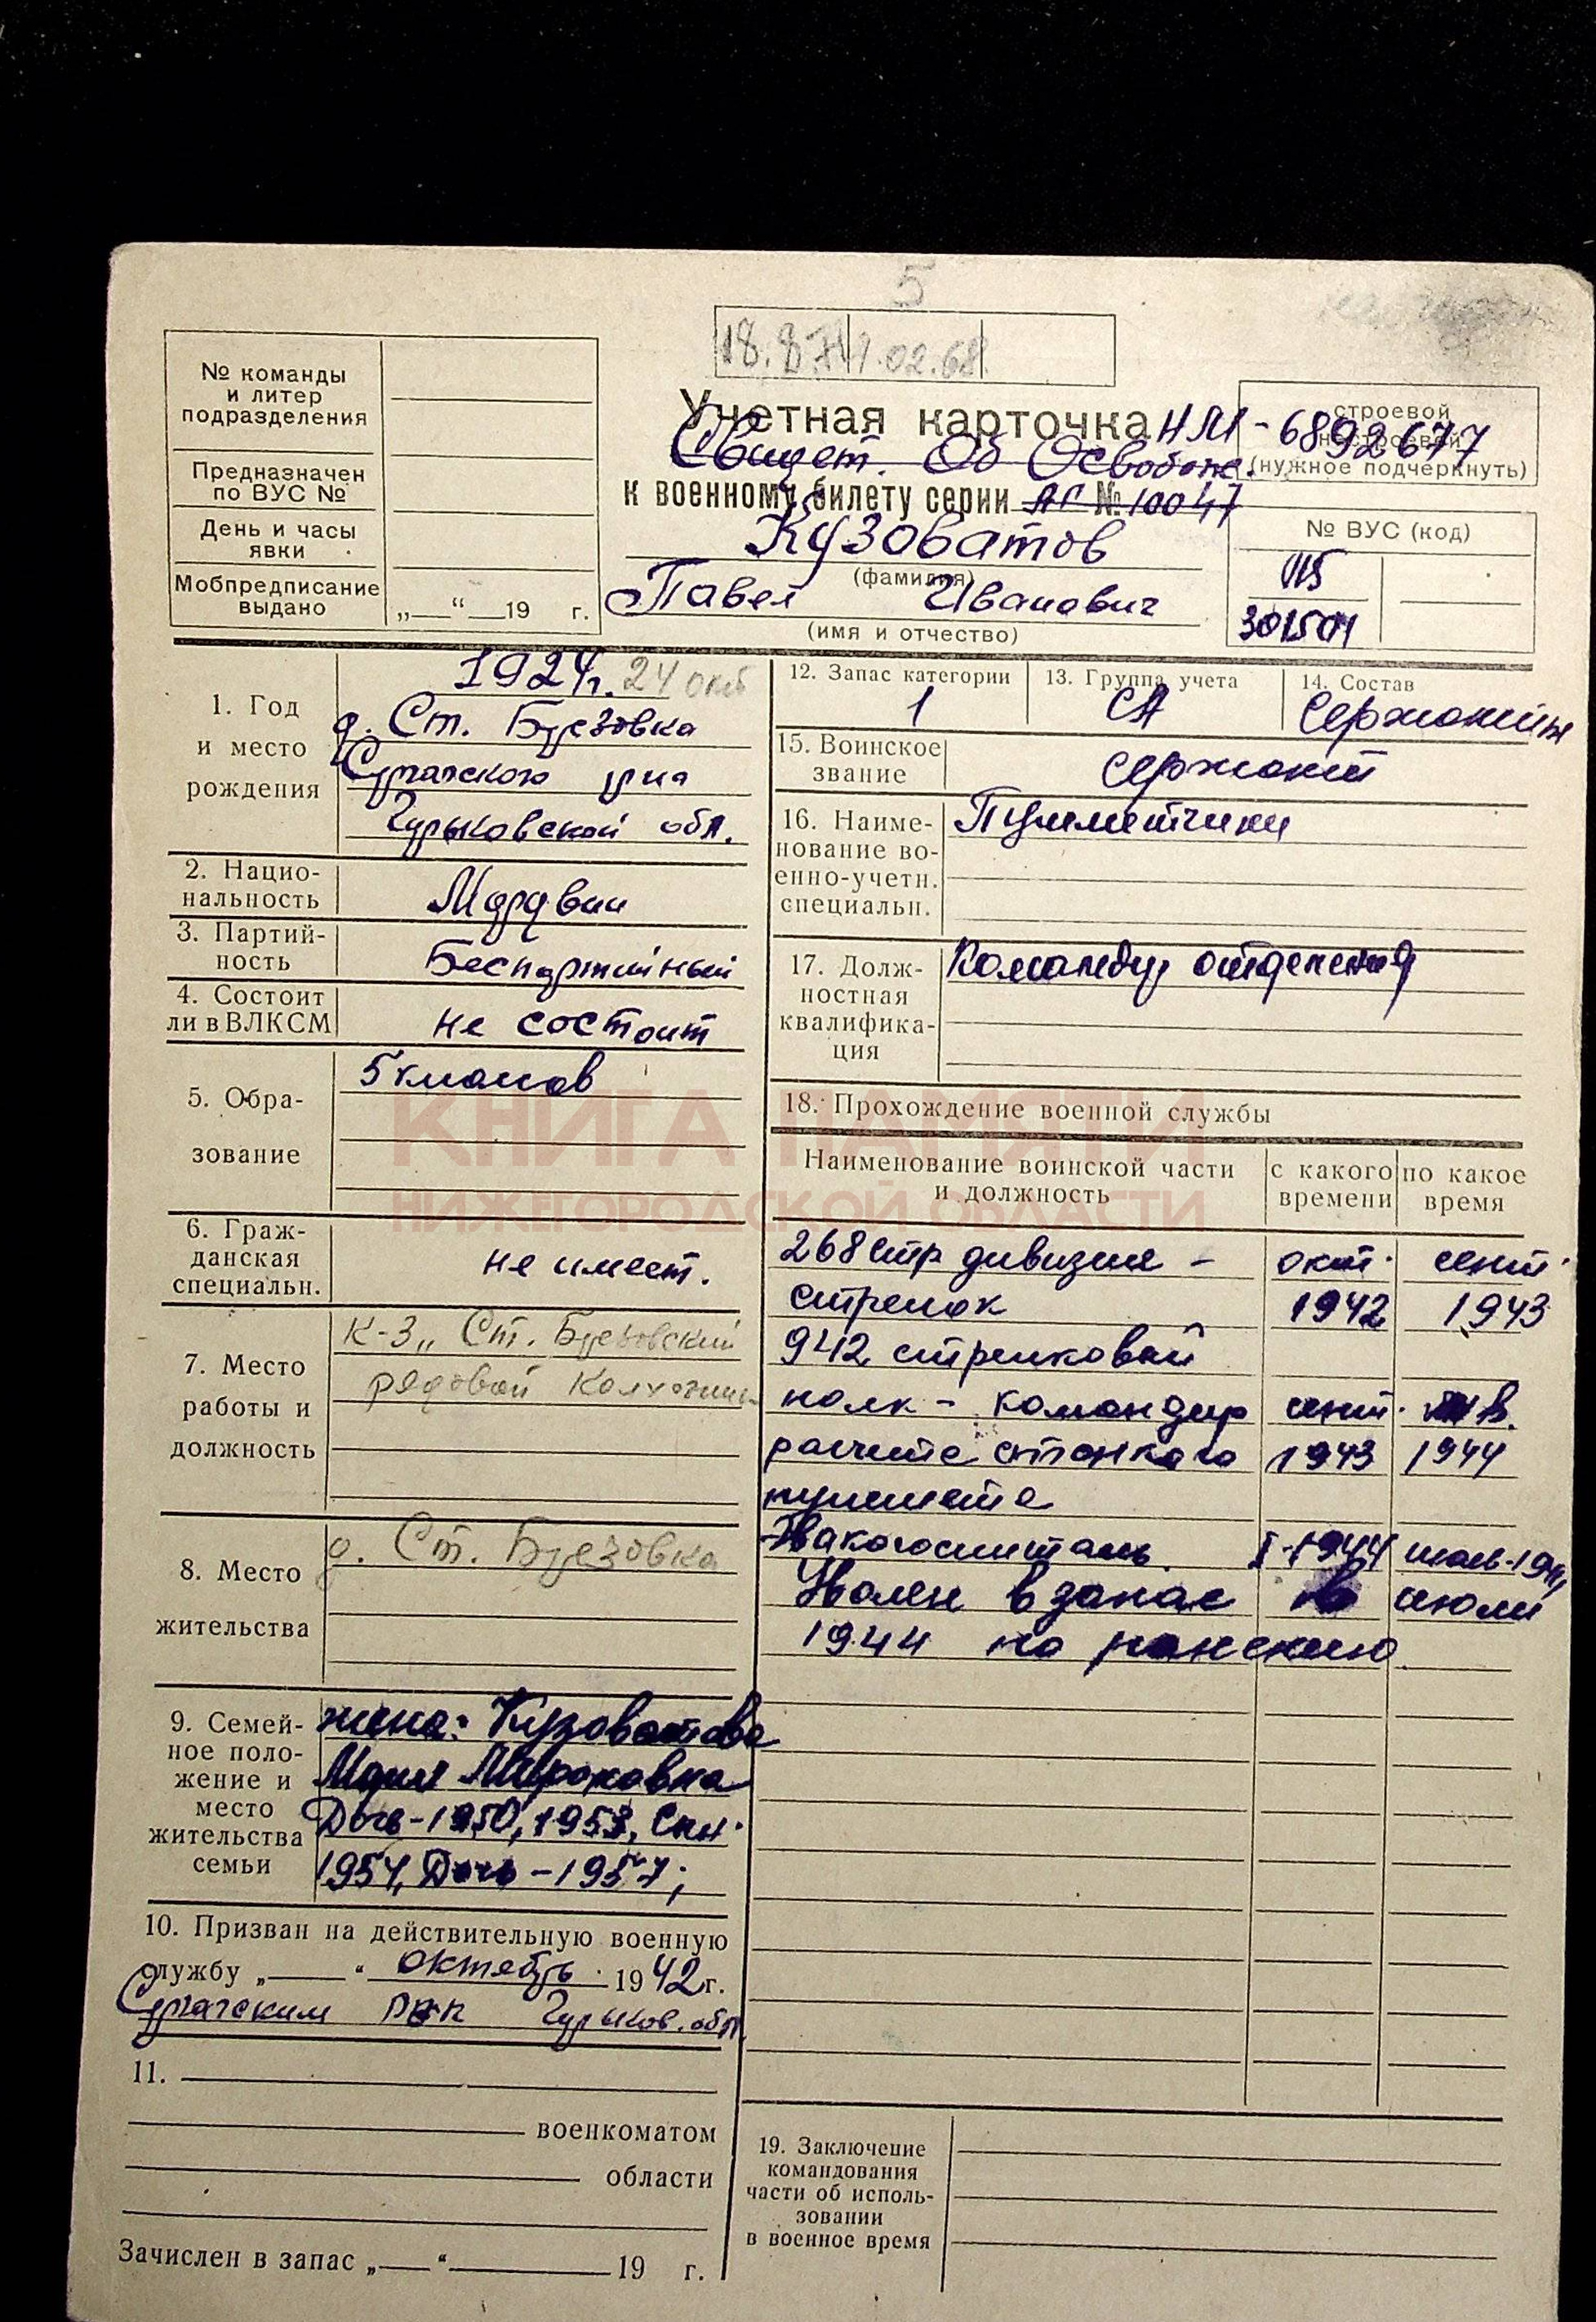 5
18.8.74
1.02.68
№ команды
и литер
подразделения
Предназначен
по ВУС №
День и часы
явки
Мобпредписание
выдано
„ “ 19 г.
Учетная карточка НМ-6892677
Свидет. Об Освобожд.
к военному билету серии № 10047
Кузоватов
(фамилия)
Павел Иванович
(имя и отчество)
строевой
нестроевой
(нужное подчеркнуть)
№ ВУС (код)
301501
1. Год
и место
рождения
1924г. 24 окт
д. Ст. Березовка
Сергачского р-на
Горьковской обл.
2. Нацио-
нальность
Мордвин
3. Партий-
ность
Беспартийный
4. Состоит
ли в ВЛКСМ
не состоит
5. Обра-
зование
5 классов
6. Граж-
данская
специальн.
не имеет.
7. Место
работы и
должность
к-з „Ст. Березовский
рядовой колхозник
8. Место
жительства
д. Ст. Березовка
9. Семей-
ное поло-
жение и
место
жительства
семьи
жена: Кузоватова
Мария Мироновна
Дочь-1950, 1953, Сын
1954, Дочь-1957;
10. Призван на действительную военную
службу „ “ октябрь 1942г.
Сергачским РВК Горьков. обл.
11.
военкоматом
области
Зачислен в запас „ “ 19 г.
12. Запас категории
1
13. Группа учета
СА
14. Состав
Сержантск
15. Воинское
звание
сержант
16. Наиме-
нование во-
енно-учетн.
специальн.
Пулеметчики
17. Долж-
ностная
квалифика-
ция
Командир отделения
18. Прохождение военной службы
Наименование воинской части
и должность
с какого
времени
по какое
время
268 стр дивизия - окт. сент.
стрелок 1942 1943
942 стрелковый
полк - командир сент. янв.
расчета станкого 1943 1944
пулемета
Эвакогоспиталь I-1944
Уволен в запас в июли
1944 по ранению
19. Заключение
командования
части об исполь-
зовании
в военное время
КНИГА ПАМЯТИ
НИЖЕГОРОДСКОЙ ОБЛАСТИ